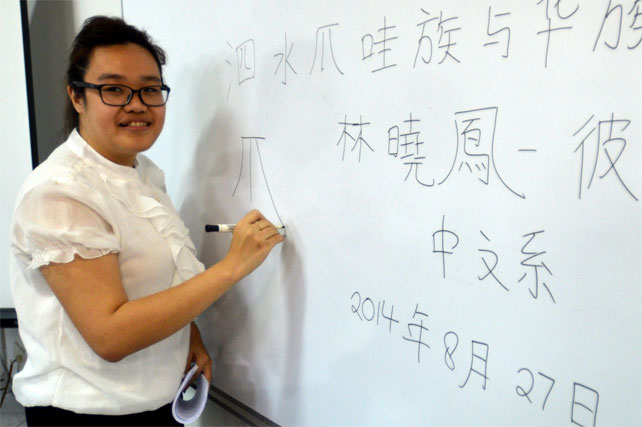 泗水爪哇族与华族
林曉鳳-彼
爪
中文系
2014年8月27日